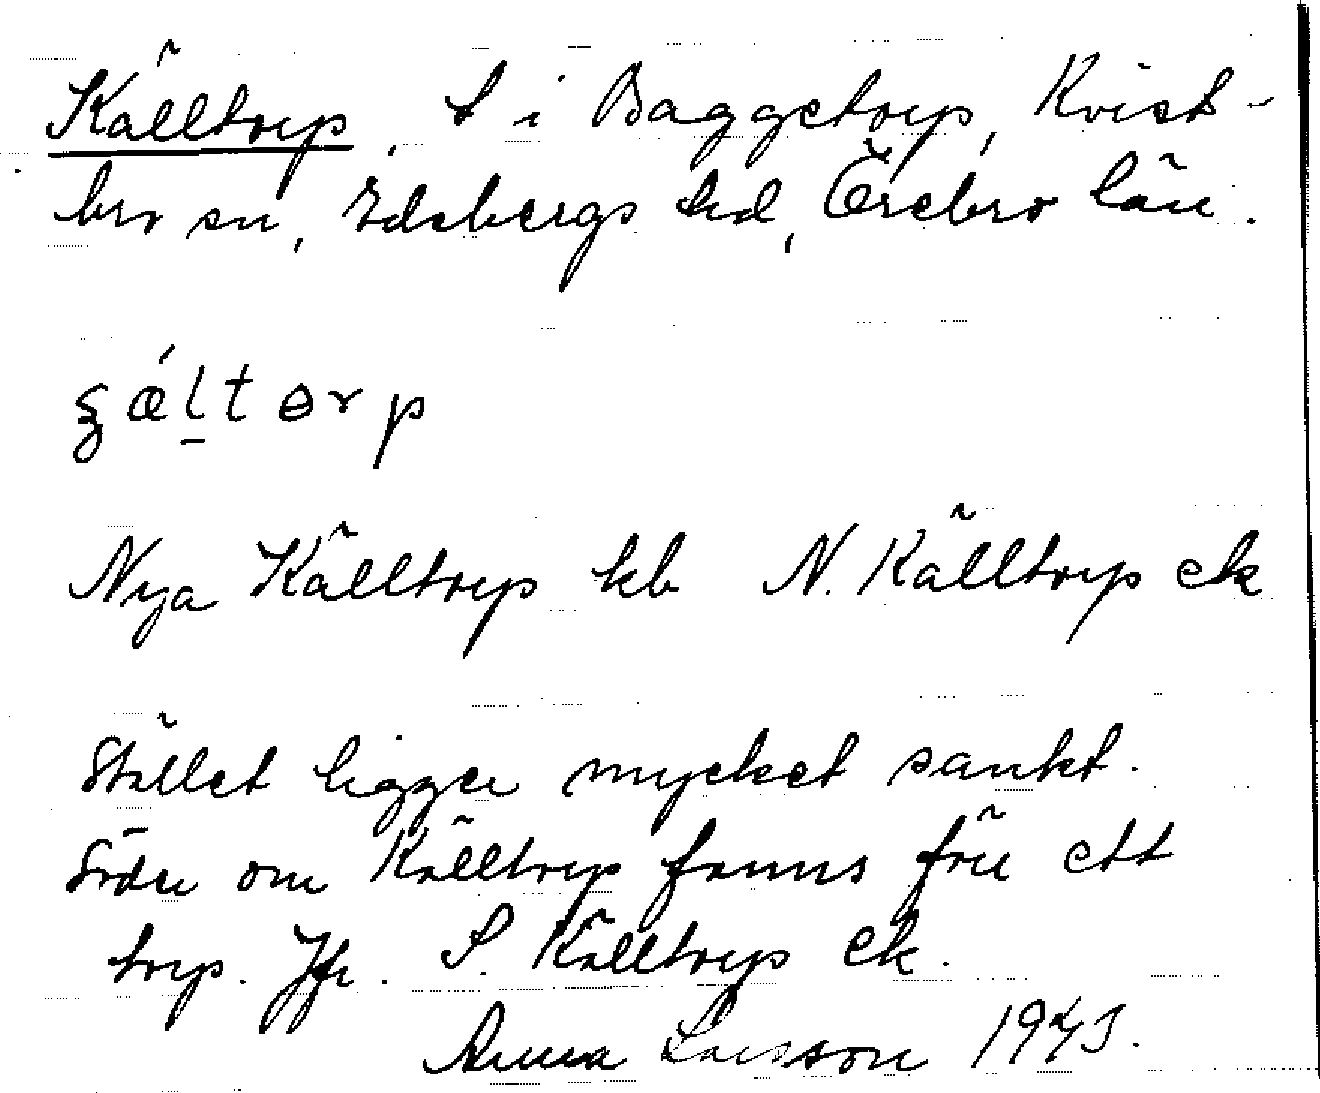 Källtorp, t i Baggetorp, Kvist-
bro sn, Edsbergs hd, Örebro län.
ʂǽḷtɵrp
Nya Källtorp kb N. Källtorp ek
Stället ligger mycket sankt.
Söder om Källtorp fanns förr ett
torp. Jfr. S. Källtorp ek.
Anna Larsson 1943.